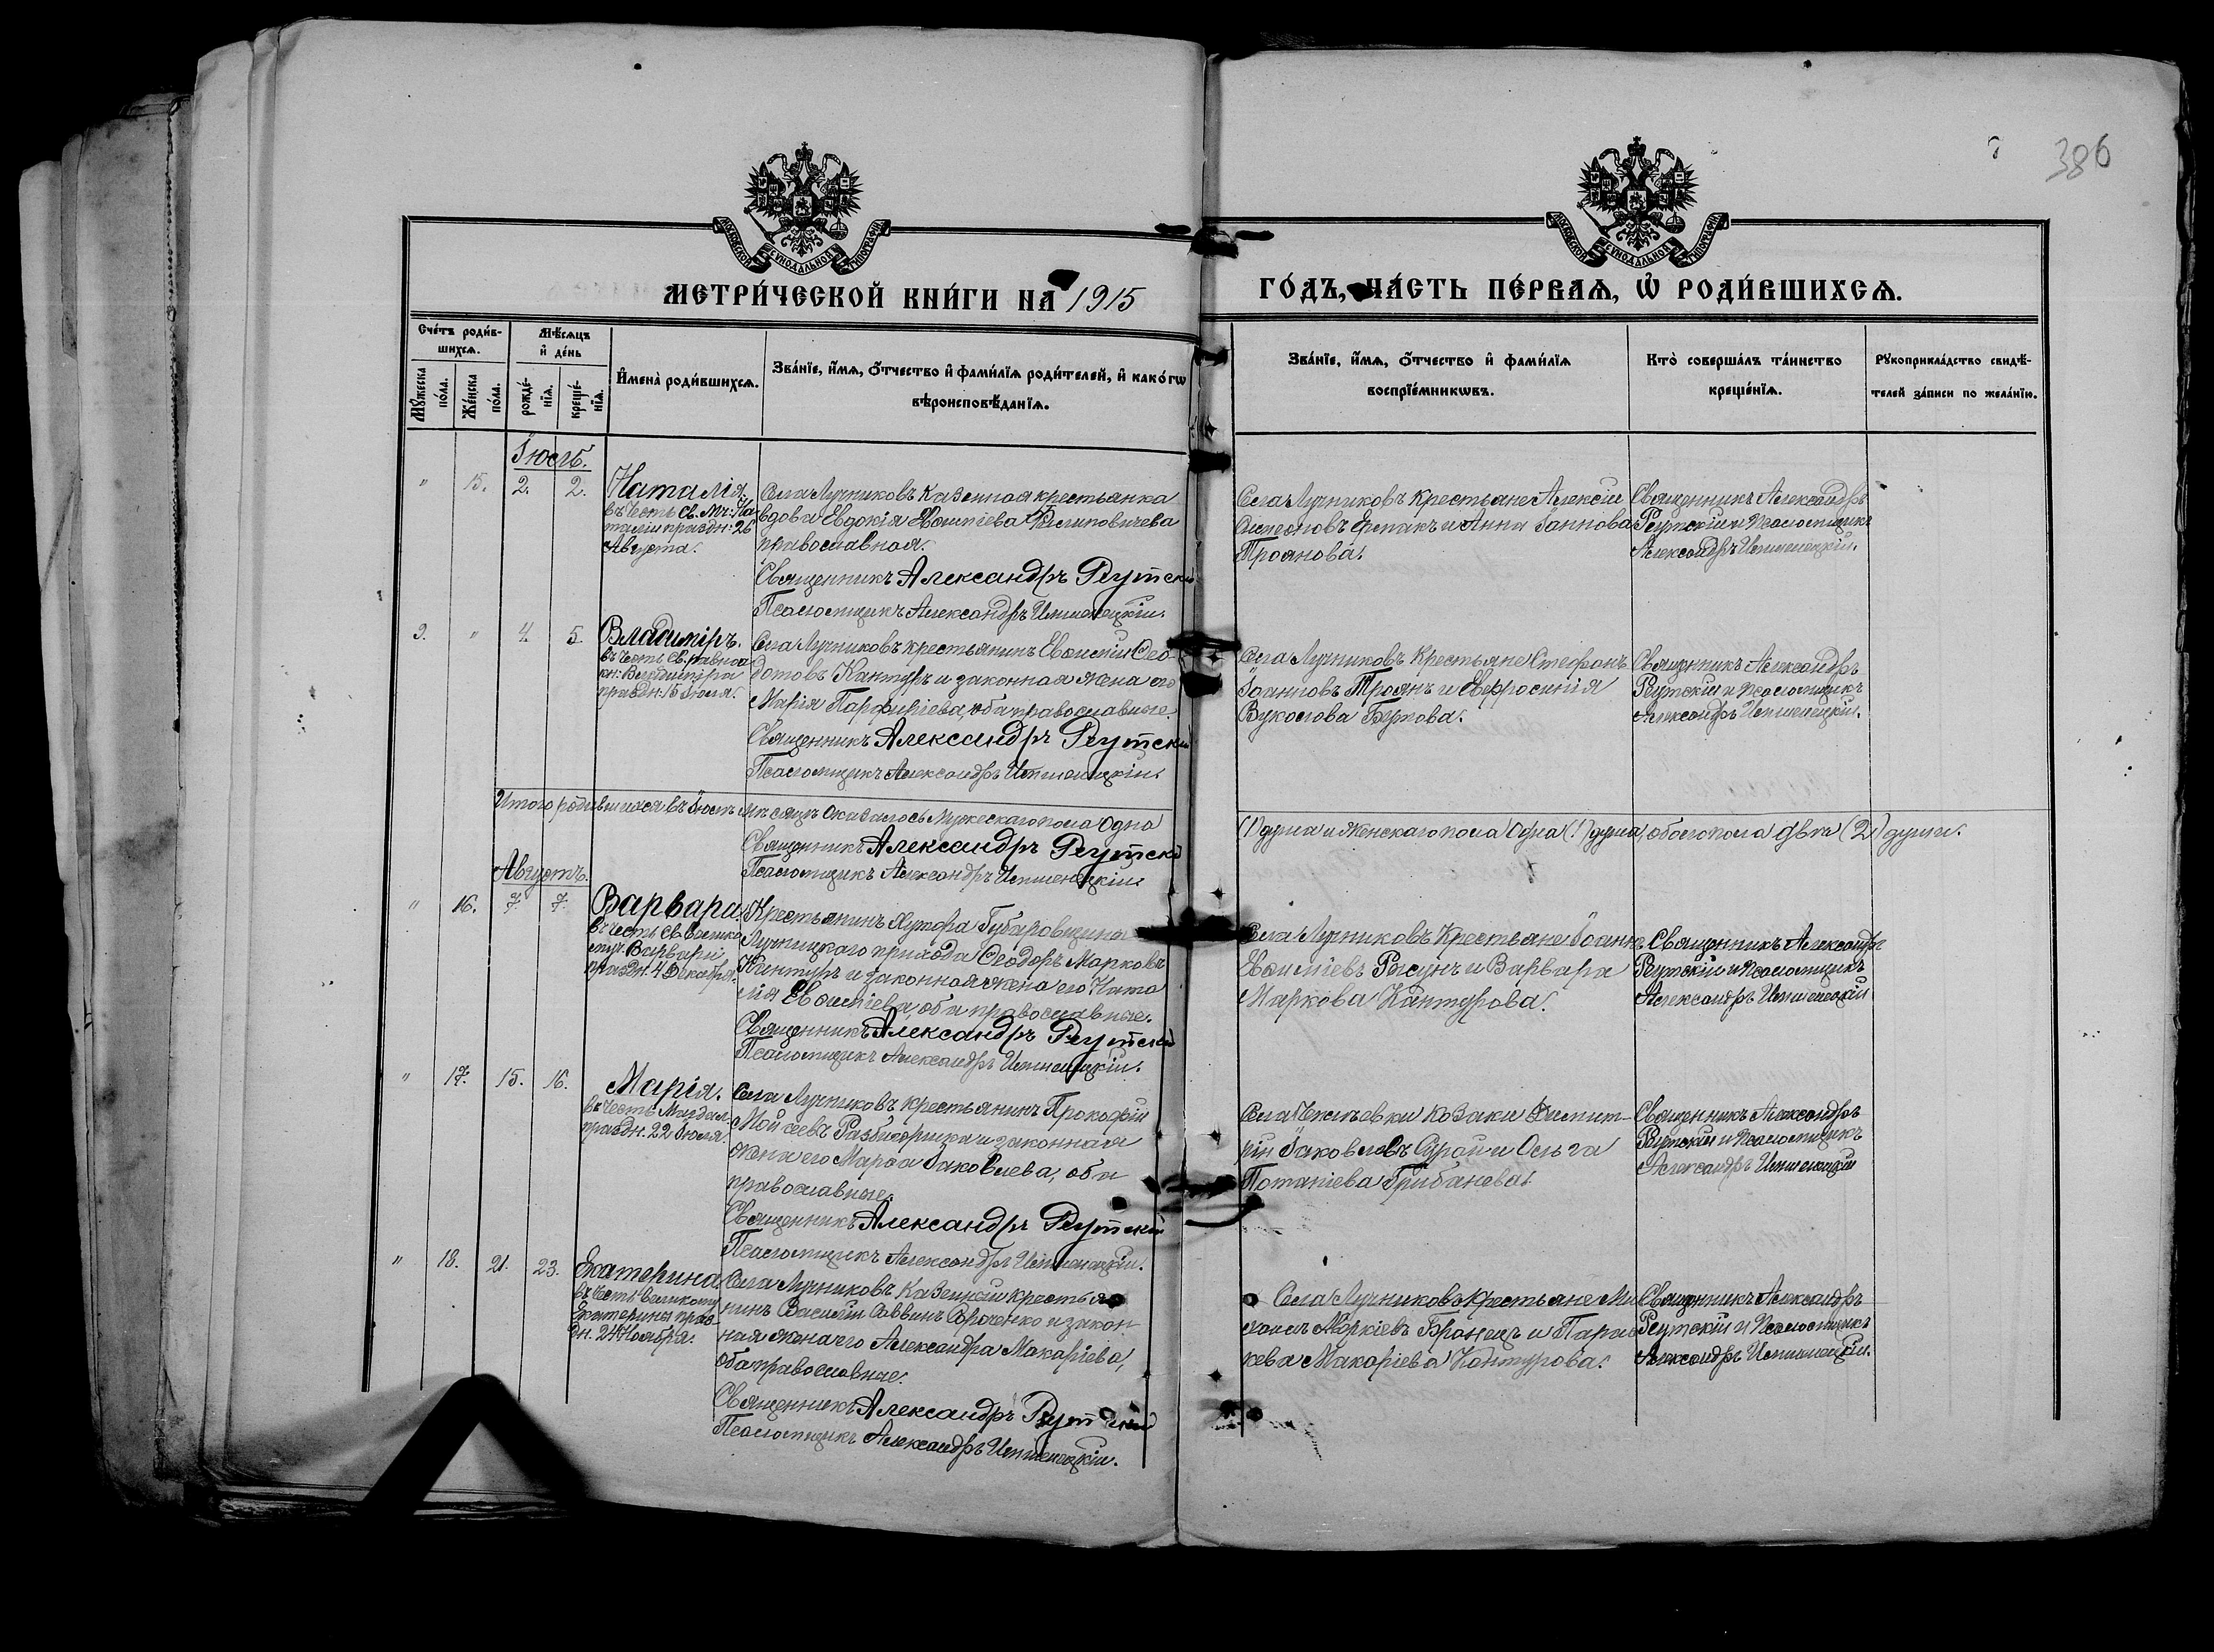 386
МОСКОВСКОЙ СѴНОДАЛЬНОЙ ТИПОГРАФІИ
МОСКОВСКОЙ СѴНОДАЛЬНОЙ ТИПОГРАФІИ
МЕТРИ́ЧЕСКОЙ КНИ́ГИ НА 1915
ГО́ДЪ, ЧА́СТЬ ПЕ́РВАѦ, Ѿ РОДИ́ВШИХСѦ.
Сче́тъ роди́в-
шихсѧ.
Мꙋ́жеска
по́ла.
Же́нска
по́ла.
Мѣ́сѧцъ
и҆ де́нь
рожде́-
нїѧ.
креще́-
нїѧ.
И҆мена̀ роди́вшихсѧ.
Зва́нїе, и҆́мѧ, ѻ҆́тчество и҆ фами́лїѧ роди́телей, и҆ како́гѡ
вѣроисповѣ́данїѧ.
Зва́нїе, и҆́мѧ, ѻ҆́тчество и҆ фами́лїѧ
воспрїе́мникѡвъ.
Кто̀ соверша́лъ та́инство
креще́нїѧ.
Рꙋкоприкла́дство свидѣ́-
телей за́писи по жела́нїю.
Іюль.
" 15. 2. 2.
Наталія.
въ честь св. Мч: На-
таліи праздн: 26
Августа.
Села Лучниковъ казенная крестьянка
вдова Евдокія Евѳиміева Филиповичева
православная.
Священникъ Александръ Реутскій
Псаломщикъ Александръ
Села Лучниковъ крестьяне Алексій
Симеоновъ Ермакъ и Анна Іаннова
Троянова.
Священникъ Александръ
Реутскій и Псаломщикъ
Александръ
9. " 4. 5.
Владиміръ.
въ честь Св. равноа
кн: Владиміра
праздн: 15 Іюля.
Села Лучниковъ крестьянинъ Евѳимій Ѳео-
дотовъ Кантуръ и законная жена его
Марія Парфиріева, оба православные.
Священникъ Александръ Реутскій
Псаломщикъ Александръ
Села Лучниковъ Крестьяне Стефанъ
Іоанновъ Троянъ и Евфросинія
Вуколова
Священникъ Александръ
Реутскій и Псаломщикъ
Александръ
Итого родившихся въ Іюлѣ мѣсяцѣ оказалось Мужескаго пола одна
(1) душа и Женскаго пола одна (1) душа, обоего пола двѣ (2) души.
Священникъ Александръ Реутскій
Псаломщикъ Александръ
Августъ.
" 16. 7. 7.
Варвара.
въ честь св. велико
муч. Варвары
праздн. 4 Декабря.
Крестьянинъ Хутора Губаровщина
Лучницкаго прихода Ѳеодоръ Марковъ
Кантуръ и законная жена его Ната
лія Евѳиміева, оба православные.
Священникъ Александръ Реутскій
Псаломщикъ Александръ
Села Лучниковъ Крестьяне Іоаннъ
Евѳиміевъ и Варвара
Маркова Кантурова.
Священникъ Александръ
Реутскій и Псаломщикъ
Александръ
" 17. 15. 16.
Марія.
въ честь Магдал.
праздн. 22 Іюля.
Села Лучниковъ крестьянинъ Прокофій
Мойсеевъ и законная
жена его Марѳа Іаковлева, оба
православные.
Священникъ Александръ Реутскій
Псаломщикъ Александръ
Села козаки Димит-
рій Іаковлевъ и Ольга
Потапіева Грибанева.
Священникъ Александръ
Реутскій и Псаломщикъ
Александръ
" 18. 21. 23.
Екатерина
въ честь великому
Екатерины праз-
дн. 24 Ноября.
Села Лучниковъ казенный крестья
нинъ Василій Саввинъ Сороченко и закон
ная жена его Александра Макаріева,
оба православные.
Священникъ Александръ Реутскій
Псаломщикъ Александръ
Села Лучниковъ крестьяне Ми
хаилъ Маркіевъ Бранецъ и Парас
кева Макаріева Кантурова.
Священникъ Александръ
Реутскій и Псаломщикъ
Александръ